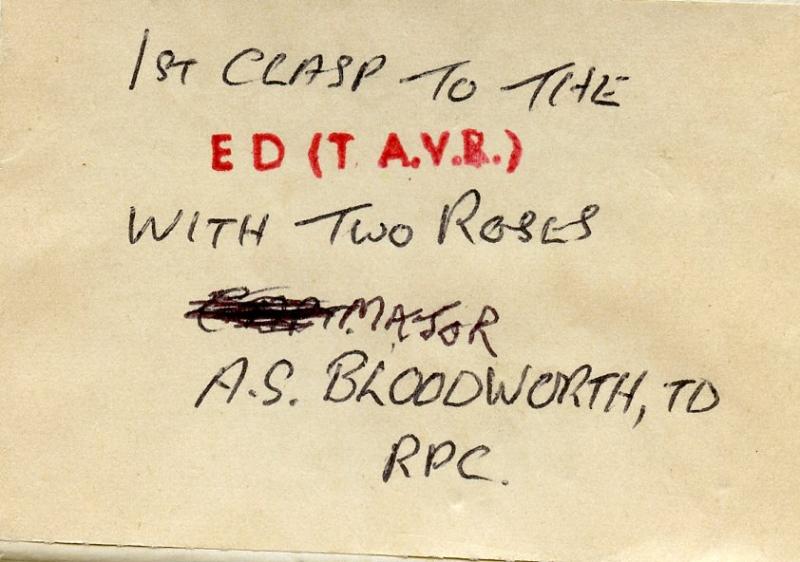 1ST CLASP TO THE
ED (T A.V.R.)
WITH TWO ROSES
MAJOR
A.S. BLOODWORTH, TD
RPC.